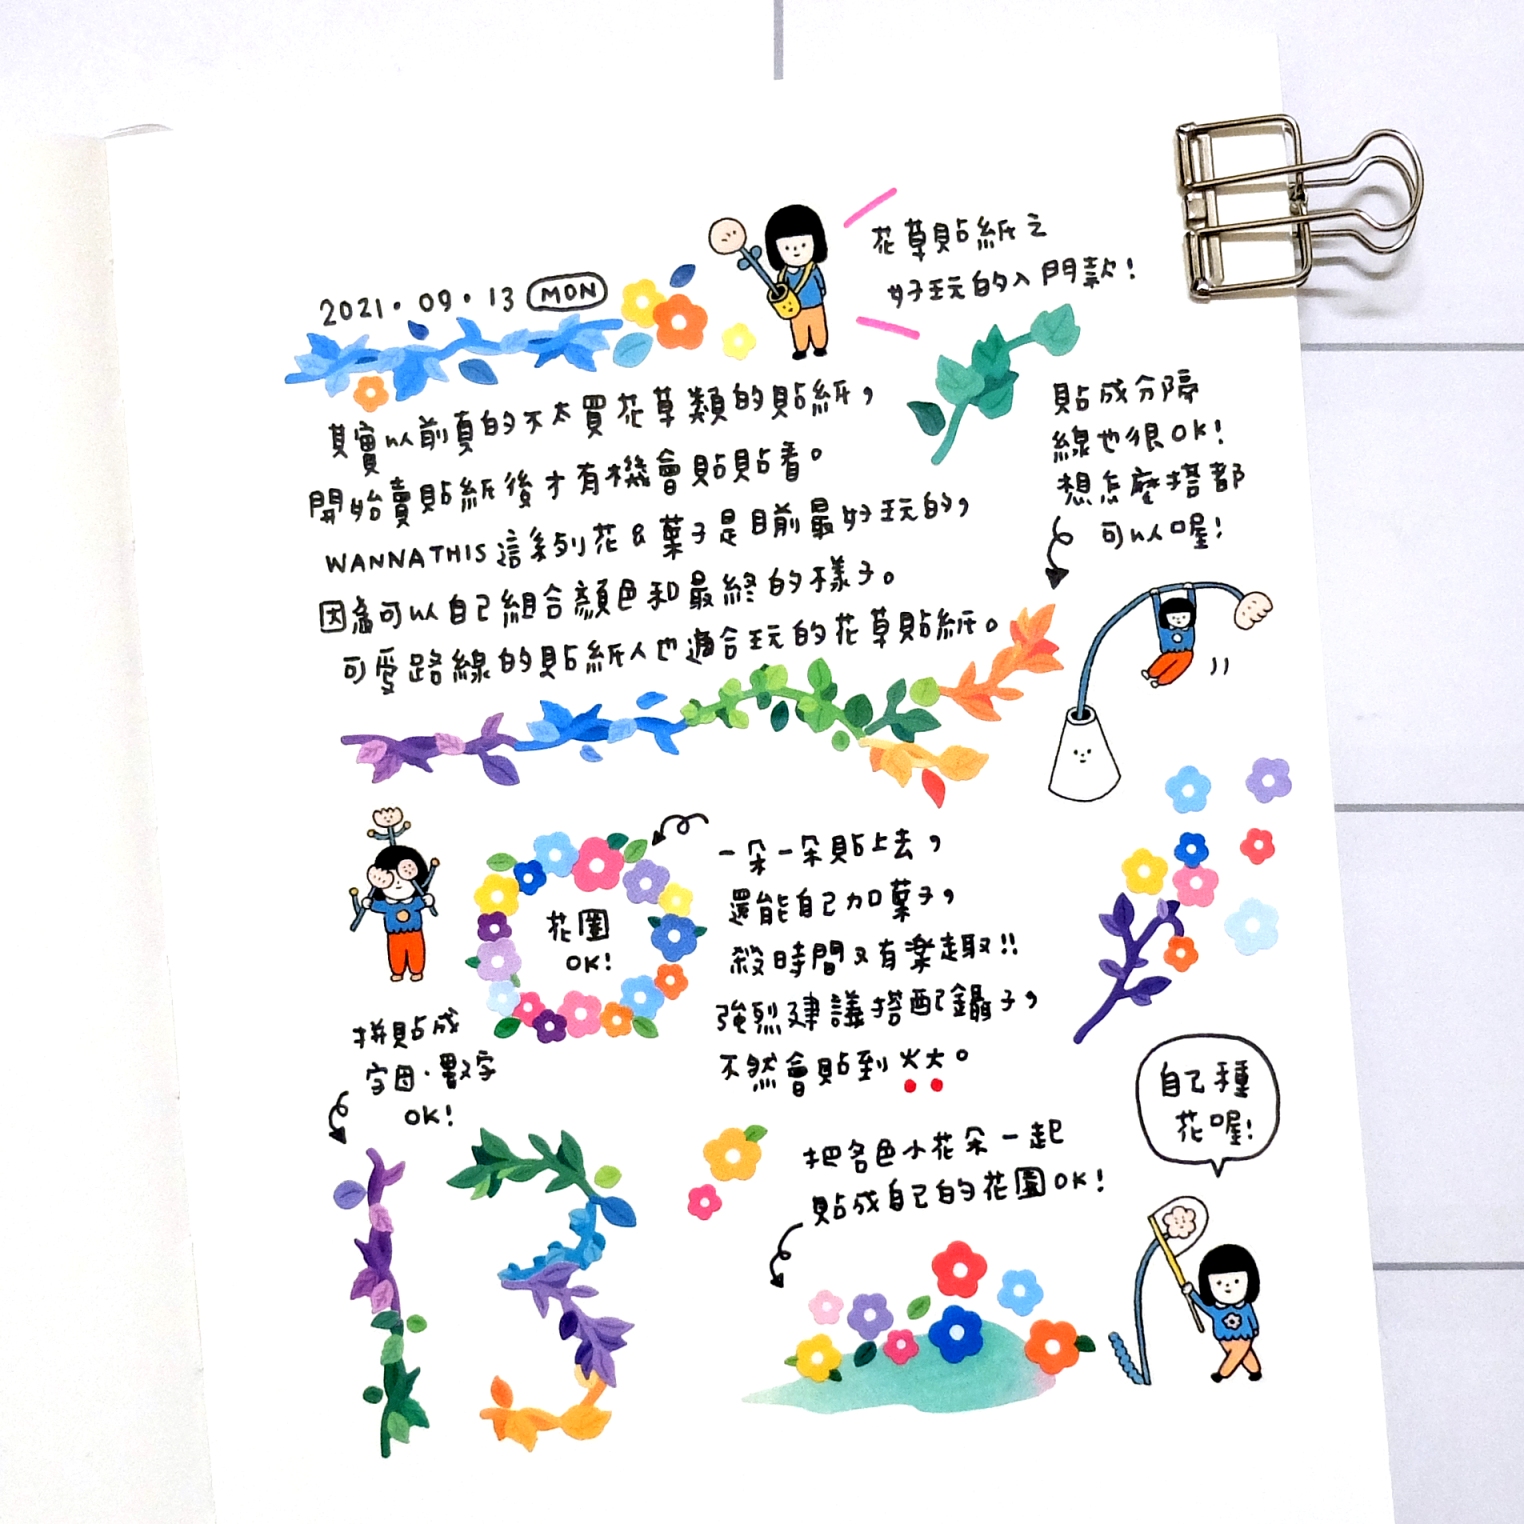 2021.09.13 MON
花草貼紙之
好玩的入門款!
其實以前真的不太買花草類的貼紙,
開始賣貼紙後才有機會貼貼看。
WANNATHIS 這系列花&葉子是目前最好玩的,
因為可以自己組合顏色和最終的樣子。
可愛路線的貼紙人也適合玩的花草貼紙。
貼成分隔
線也很OK!
想怎麼搭都
可以喔!
花圈
OK!
一朵一朵貼上去,
還能自己加葉子,
殺時間又有樂趣!!
強烈建議搭配鑷子,
不然會貼到火大。
拼貼成
字母·數字
OK!
把各色小花朵一起
貼成自己的花園OK!
自己種
花喔!